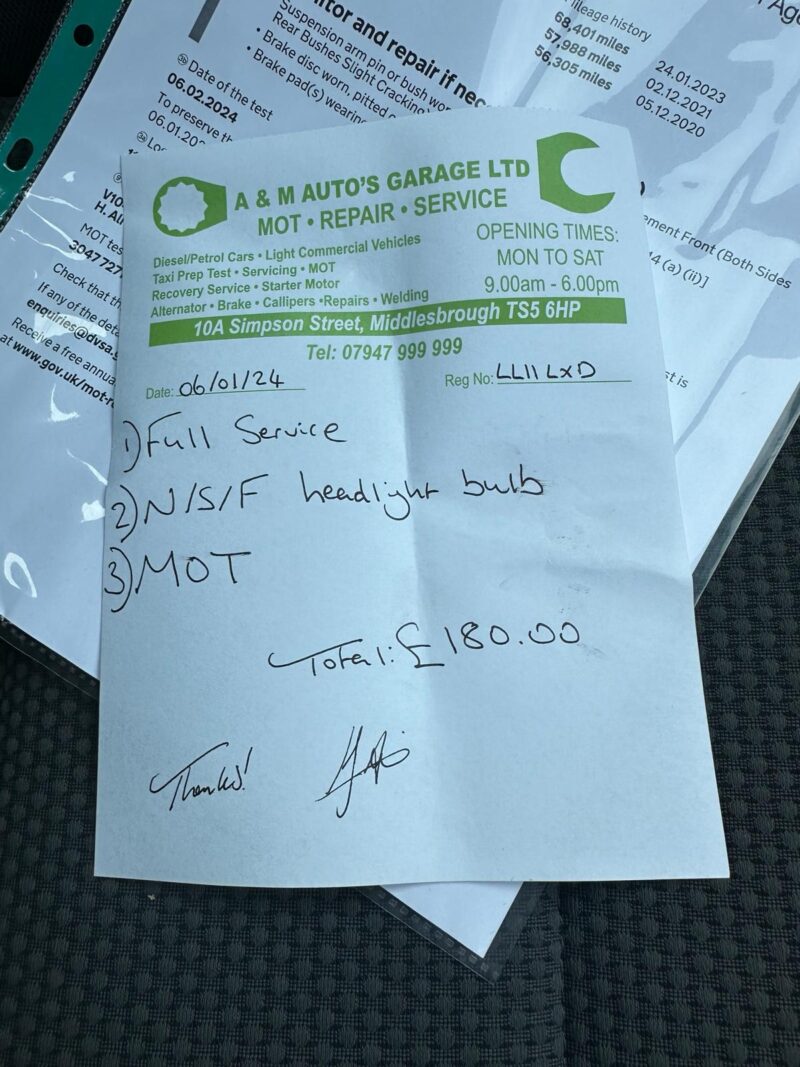 itor and repair if nec
Suspension arm pin or bush wo
Rear Bushes Slight Cracking
• Brake disc worn, pitted o
• Brake pad(s) wearin
ileage history
68,401 miles
57,988 miles
56,305 miles
24.01.2023
02.12.2021
05.12.2020
Date of the test
06.02.2024
To preserve th
06.01.20
Loc
V10
H. Ali
MOT tes
3047727
Check that th
If any of the deta
enquiries@dvsa.g
Receive a free annua
at www.gov.uk/mot-r
ement Front (Both Sides
4 (a) (ii)]
st is
A & M AUTO'S GARAGE LTD
MOT • REPAIR • SERVICE
Diesel/Petrol Cars • Light Commercial Vehicles
Taxi Prep Test • Servicing • MOT
Recovery Service • Starter Motor
Alternator • Brake • Callipers •Repairs • Welding
OPENING TIMES:
MON TO SAT
9.00am - 6.00pm
10A Simpson Street, Middlesbrough TS5 6HP
Tel: 07947 999 999
Date: 06/01/24
Reg No: LL11 LXD
1) Full Service
2) N/S/F headlight bulb
3) MOT
Total: £180.00
Thanks!